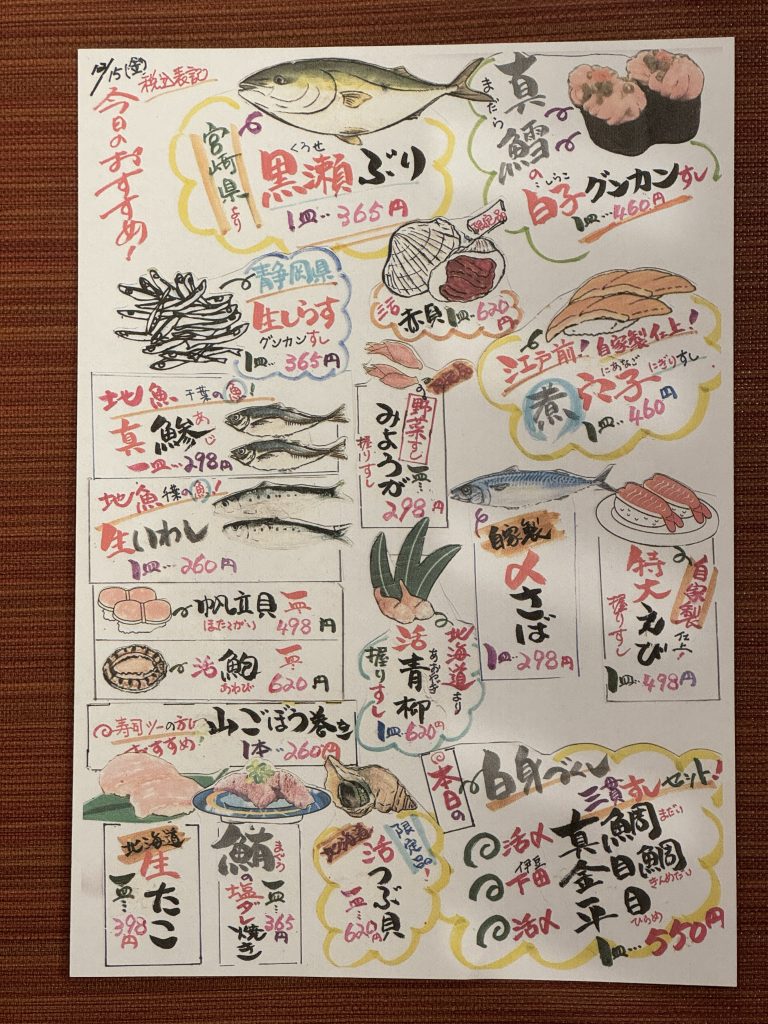 12/15(金)
税込表記
今日のおすすめ!
宮崎県より
くろせ
黒瀬ぶり
1皿…365円
まだら
真鱈の
しらこ
白子グンカンすし
1皿…460円
静岡県
生しらす
グンカンすし
1皿…365円
限定品
活赤貝1皿…620円
江戸前!自家製仕上!
にあなご にぎりすし
煮穴子
1皿…460円
地魚 千葉の魚!
あじ
真鯵
一皿…298円
野菜すし
みょうが
握りすし
一皿…
298円
地魚 の魚!
生いわし
1皿…260円
自家製
〆さば
1皿…298円
自家製仕上!
特大えび
握りすし
1皿…498円
帆立貝
ほたてがい
一皿…
498円
活鮑
あわび
一皿…
620円
北海道より
活青柳
あおやぎ
握りすし
1皿…620円
寿司ツーの方に
おすすめ!
山ごぼう巻き
1本…260円
本日の
白身づくし
三貫すしセット!
活〆 真鯛 まだい
伊豆
下田 金目鯛 きんめだい
活〆 平目 ひらめ
1皿…550円
北海道
生たこ
一皿…
398円
まぐろ
鮪の塩ダレ焼き
一皿…
365円
北海道
限定品!
活つぶ貝
一皿…
620円